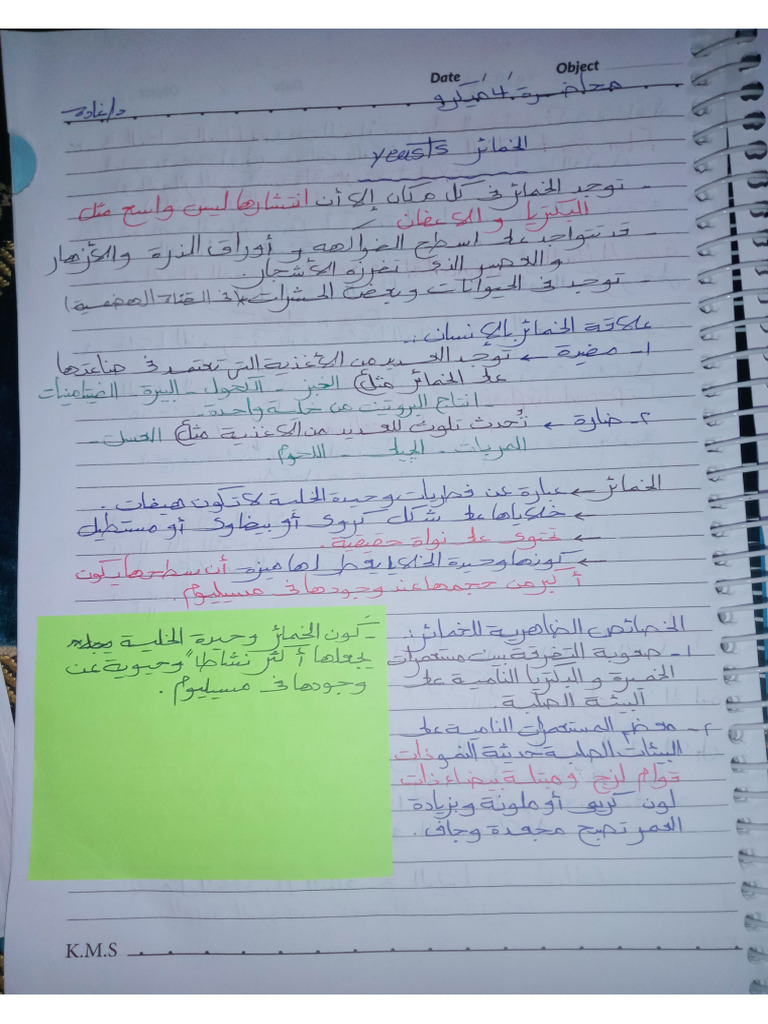 Date / / Object
محاضرة 4 ميكرو
د/غادة
الخمائر yeasts
- توجد الخمائر في كل مكان إلا أن انتشارها ليس واسع مثل
البكتريا والاعفان
- قد تتواجد على اسطح الفواكهه و أوراق الذرة والأزهار
والعصير الذي تفرزه الأشجار.
- توجد في الحيوانات وبعض الحشرات (في القناة الهضمية)
علاقة الخمائر بالانسان :.
١- مفيدة ← توجد العديد من الأغذية التي تعتمد في صناعتها
على الخمائر مثل الخبز - الكحول - البيرة - الفيتامينات
- انتاج البروتين من خلية واحدة.
٢- ضارة ← تُحدث تلوث للعديد من الاغذية مثل العسل -
المربات - الجيلي - اللحوم.
الخمائر ← عبارة عن فطريات وحيدة الخلية لا تكون هيفات.
← خلاياها على شكل كروي أو بيضاوي أو مستطيل
← تحتوي على نواة حقيقية.
← كونها وحيدة الخلايا يعطي لها ميزة أن سطحها يكون
أكبر من حجمها عند وجودها في مسيليوم.
الخصائص الظاهرية للخمائر:
١- صعوبة التفرقة بين مستعمرات
الخميرة و البكتريا النامية على
البيئة الصلبة.
٢- معظم المستعمرات النامية على
البيئات الصلبة حديثة النمو ذات
قوام لزج ومبتلة بيضاء ذات
لون كريمي أو ملونة وبزيادة
العمر تصبح مجعدة وجاف.
- كون الخمائر وحيدة الخلية
يجعلها أكثر نشاطاً وحيوية عن
وجودها في مسيليوم.
K.M.S